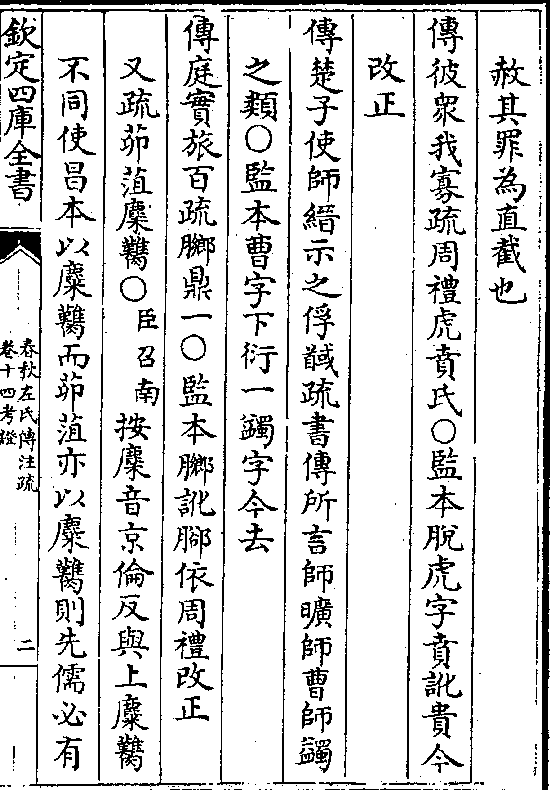 赦其罪為直截也
傳彼衆我寡疏周禮虎賁氏〇監本脫虎字賁訛貴今
改正
傳楚子使師縉示之俘馘疏書傳所言師曠師曹師蠲
之類〇監本曹字下衍一蠲字今去
傳庭實旅百疏膷鼎一〇監本膷訛腳依周禮改正
又疏茆菹麇鸡〇臣召南按麇音京倫反與上麋
不同使昌本以麋而茆菹亦以麋則先儒必有
欽定四庫全書
春秋左氏傳注疏
卷十四考證
二